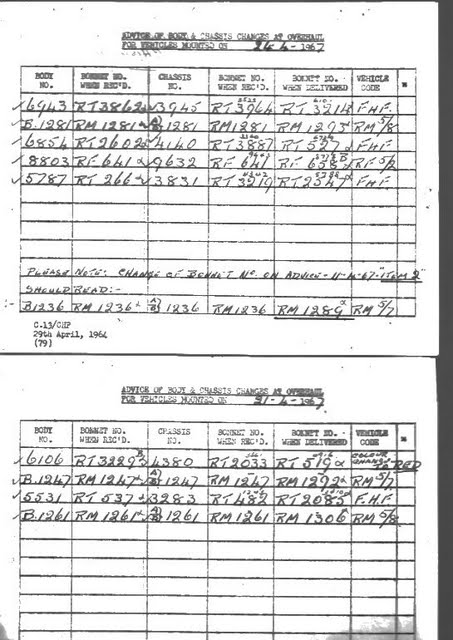 ADVICE OF BODY & CHASSIS CHANGES AT OVERHAUL
FOR VEHICLES MOUNTED ON 24-4-1967
BODY NO. BONNET NO. WHEN REC'D. CHASSIS NO. BONNET NO. WHEN REC'D. BONNET NO. WHEN DELIVERED VEHICLE CODE *
✓6943 RT3862 ✓3945 RT3964 RT3214 F.H.F.
✓B.1281 RM 1281 1281 RM1281 RM 1293 RM 5/8
✓6854 RT2602 ✓4140 RT3887 RT527 F.H.F.
✓8803 RF 641 ✓9632 RF 641 RF 658 RF 5/2
✓5787 RT 266 ✓3831 RT3219 RT2547 F.H.F.
PLEASE NOTE: CHANGE OF BONNET No. ON ADVICE - 11-4-67 - "ITEM 2"
SHOULD READ:-
B1236 RM 1236 1236 RM1236 RM 1289 RM 5/7
C.13/CHP
29th April, 1964
(79)
ADVICE OF BODY & CHASSIS CHANGES AT OVERHAUL
FOR VEHICLES MOUNTED ON 21-4-1967
BODY NO. BONNET NO. WHEN REC'D. CHASSIS NO. BONNET NO. WHEN REC'D. BONNET NO. WHEN DELIVERED VEHICLE CODE *
✓6106 RT3229 4380 RT2033 RT519 COLOUR CHANGE TO RED
✓B.1247 RM 1247 1247 RM1247 RM 1292 RM 5/7
✓5531 RT 537 ✓3283 RT482 RT2085 F.H.F.
✓B.1261 RM 1261 1261 RM 1261 RM 1306 RM 5/8